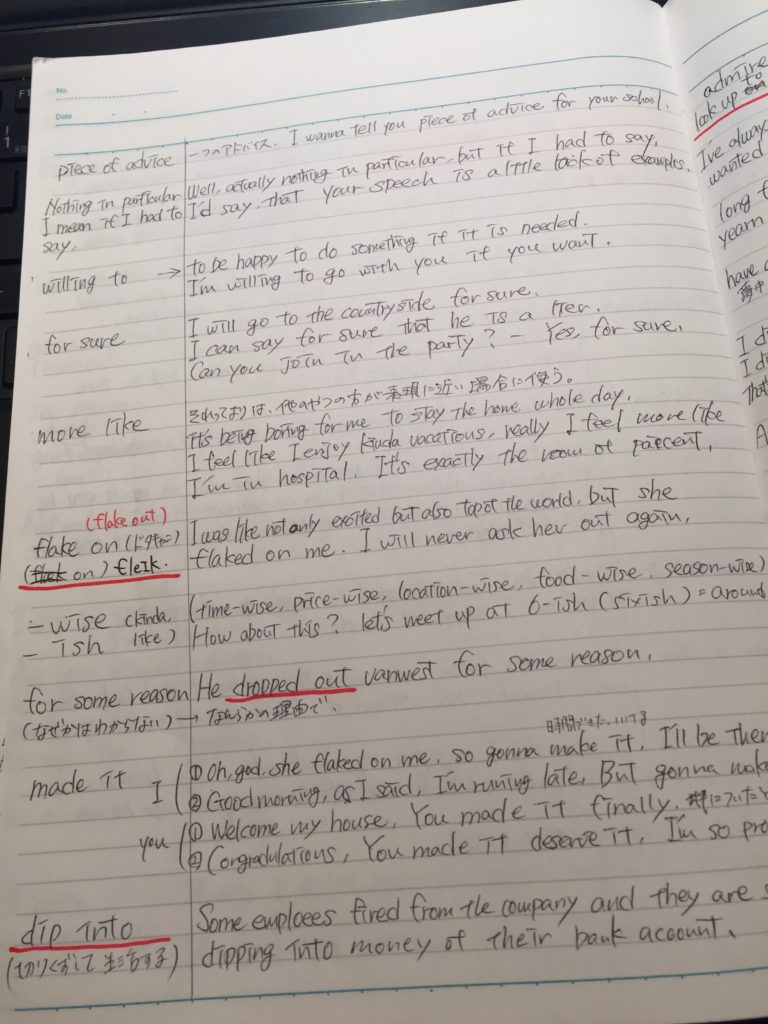 No.
Date
piece of advice 一つのアドバイス. I wanna tell you piece of advice for your school.
Nothing in particular Well, actually nothing in particular, but if I had to say,
I mean if I had to I'd say that your speech is a little lack of examples.
say,
willing to → to be happy to do something if it is needed.
I'm willing to go with you if you want.
I will go to the countryside for sure.
for sure I can say for sure that he is a lier.
Can you join in the party? – Yes, for sure.
それよりは、他のやつの方が表現に近い場合に使う。
more like It's being boring for me to stay the home whole day.
I feel like I enjoy kinda vacations, really I feel more like
I'm in hospital. It's exactly the room of paccent.
(flake out)
I was like not only excited but also topot the world, but she
flake on (ドタキャン) flaked on me. I will never ask her out again.
(on) fleik.
-wise (kinda, (time-wise, price-wise, location-wise, food-wise, season-wise)
-ish like) How about this? let's meet up at 6-ish (sixish) = around
for some reason He dropped out vanwest for some reason.
(なぜかはわからない) → なんらかの理由で.
時間
made it I ① Oh, god, she flaked on me, so gonna make it, I'll be
② Good morning, as I said, I'm running late, But gonna make
you ① Welcome my house, You made it finally.
② Congradulations, You made it deserve it, I'm so
dip into Some emploees fired from the company and they are
(切りくずして生活する) dipping into money of their bank account.
admire
look up to
I've
wanted
long
yearn
have
I
I